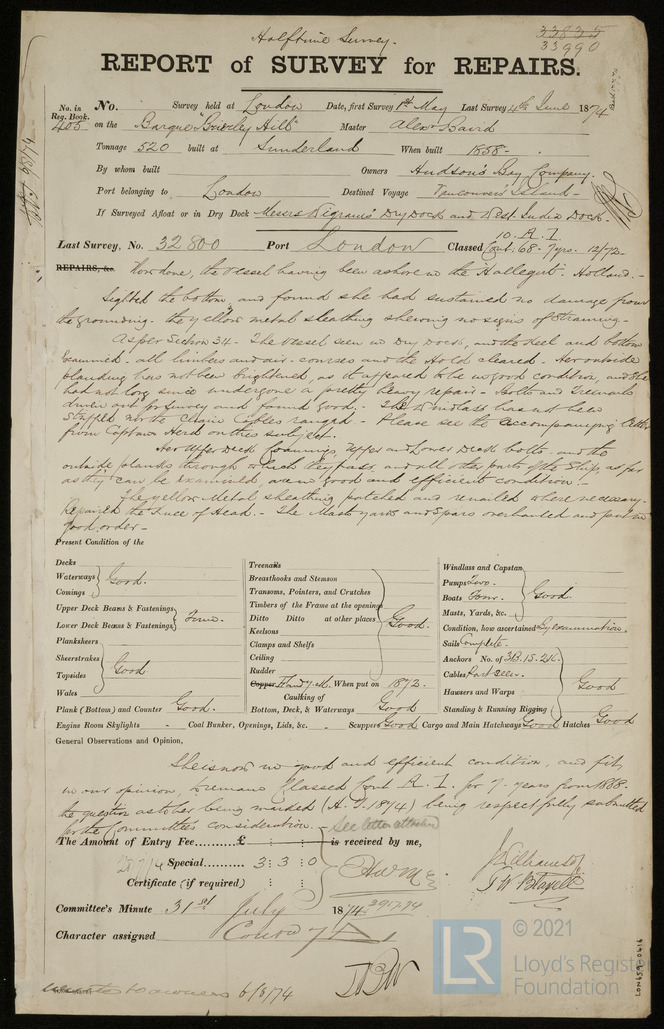 Halftime Survey.
33835
33990
REPORT of SURVEY for REPAIRS.
No. in Reg. Book. No. Survey held at London Date, first Survey 1st May Last Survey 4th June 1874
405 on the Barque "Brierley Hill" Master Alexr Baird
Tonnage 520 built at Sunderland When built 1858-
By whom built Owners Hudson's Bay Company.
Port belonging to London Destined Voyage Vancouver's Island-
If Surveyed Afloat or in Dry Dock Messrs Wigrams' Dry Dock and West India Dock.
10. A. I.
Last Survey, No. 32800 Port London Classed Cont: 68- 7yrs. 12/72-
REPAIRS, &c. Now done, the vessel having been ashore in the Hollegat. Holland.-
Sighted the bottom, and found she had sustained no damage from
the grounding. the yellow metal sheathing shewing no signs of straining-
As per Section 34- The vessel seen in Dry Dock, and the Keel and bottom
examined. all limbers and air-courses and the Hold cleared. Her outside
planking has not been brightened, as it appeared to be in good condition, and she
had not long since undergone a pretty heavy repair- Bolts and Treenails
driven out for survey and found good- The Windlass has not been
stripped nor the Chain Cables ranged- Please see the accompanying letter
from Captain Herd on this subject.
Her Upper Deck Comings, Upper and Lower Deck bolts and the
outside planks through which they pass, and all other parts of the Ship, as far
as they can be examined, are in good and efficient condition-
The yellow Metal sheathing patched and renailed where necessary.
Repaired the Knee of Head.- The Masts yards and Spars overhauled and put in
good order-
Present Condition of the
Decks
Waterways Good.
Comings
Upper Deck Beams & Fastenings
Lower Deck Beams & Fastenings
Planksheers
Sheerstrakes Good
Topsides
Wales
Plank (Bottom) and Counter Good.
Treenails
Breasthooks and Stemson
Transoms, Pointers, and Crutches
Timbers of the Frame at the openings
Ditto Ditto at other places Good.
Keelsons
Clamps and Shelfs
Ceiling
Rudder
Copper When put on 1872-
Caulking of
Bottom, Deck, & Waterways Good
Windlass and Capstan
Pumps Two.
Boats Four. Good
Masts, Yards, &c.
Condition, how ascertained by examination.
Sails Complete-
Anchors No. of 3B.1S.2K.
Cables Part seen. Good
Hausers and Warps
Standing & Running Rigging
Engine Room Skylights - Coal Bunker, Openings, Lids, &c. - Scuppers Good Cargo and Main Hatchways Good Hatches Good
General Observations and Opinion,
She is now in good and efficient condition, and fit,
in our opinion, to remain Classed Cont A. I. for 7- years from 1868-
the question as to her being marked (H.T. 1874) being respectfully submitted
for the Committee's consideration.- See letter attached
The Amount of Entry Fee.......... £ : : is received by me,
Special......... 3 : 3 : 0
Certificate (if required) : :
Committee's Minute 31st July 1874
Character assigned Cont 7 A 1
6/8/74
LON659-0416
© 2021
LR
Lloyd's Register
Foundation